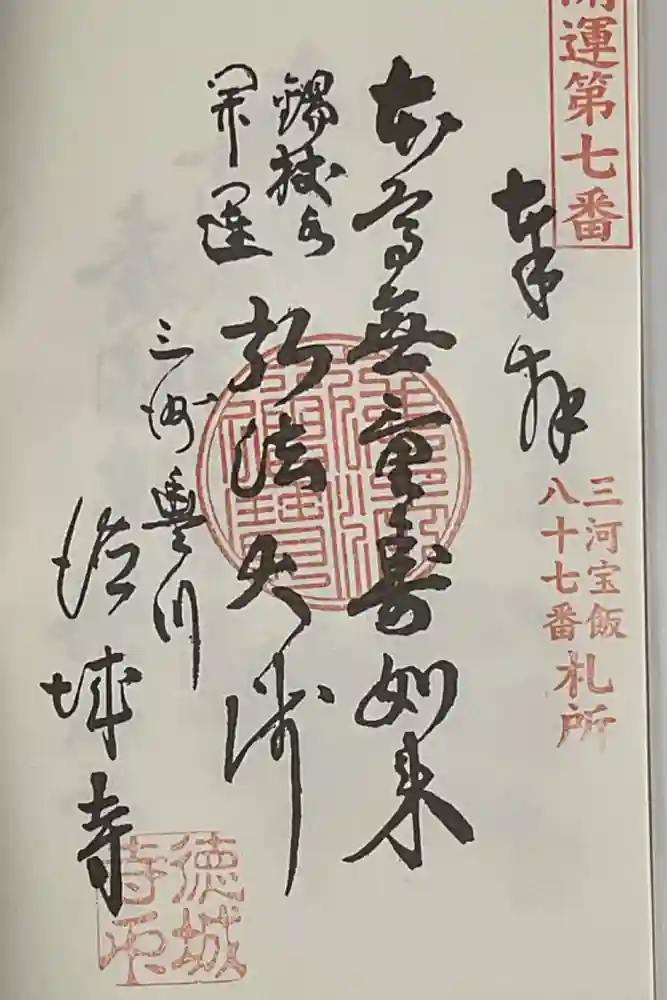 開運第七番
奉拝
三河宝飯
八十七番
札所
本尊無量壽如来
錫杖
開運
弘法大師
三州豊川
徳城寺
徳城
寺印